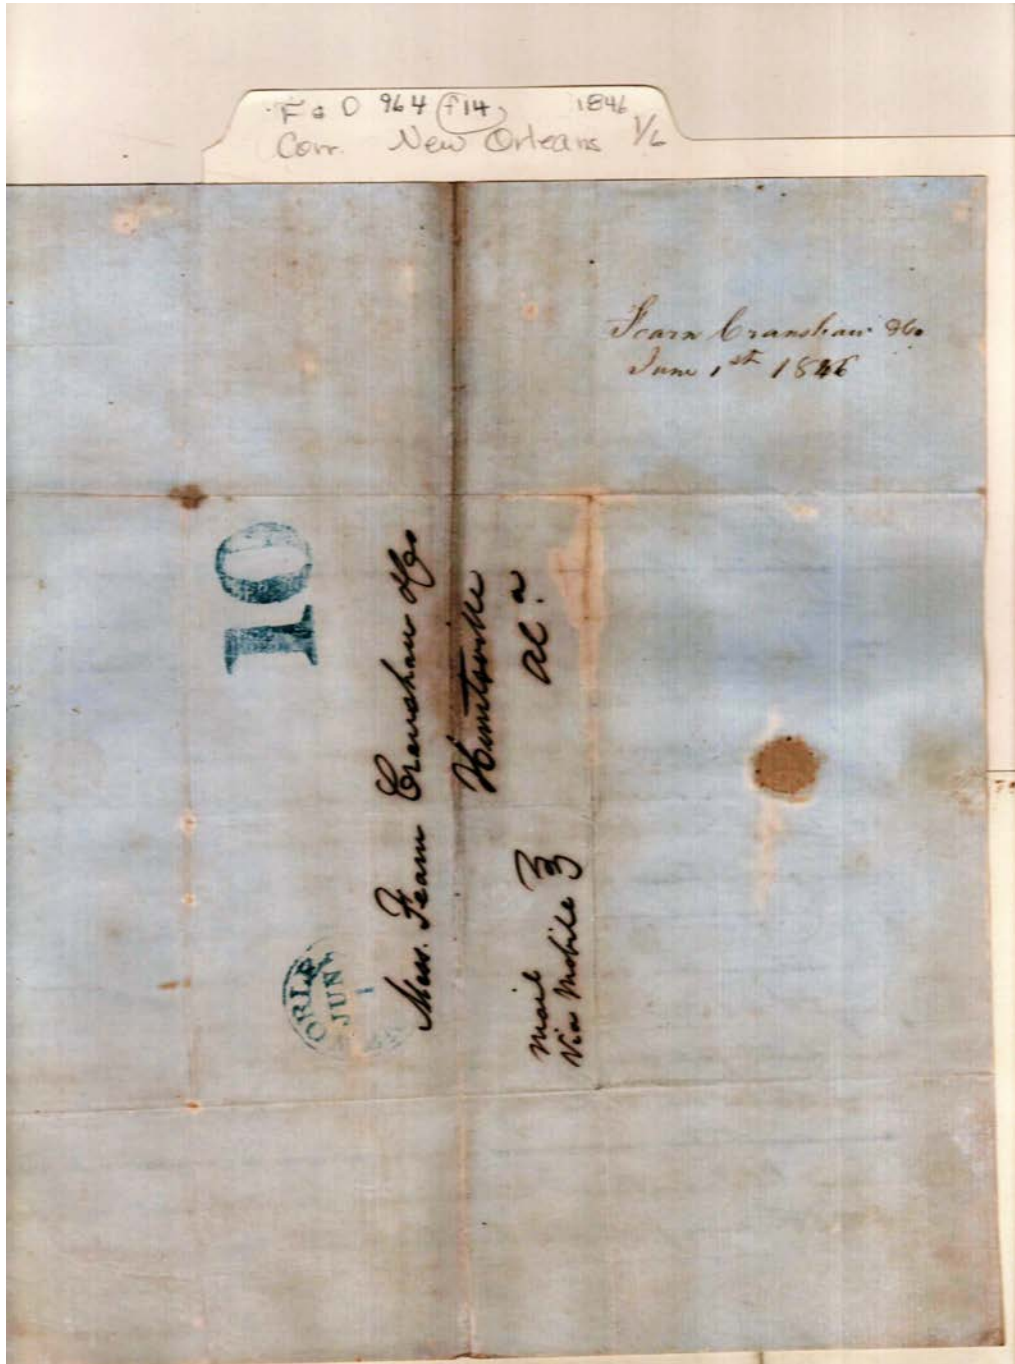 F & D 964 f14 1846
Corr. New Orleans 1/6
Fearn Cranshaw &Co
June 1st 1846
10
ORLE
JUN
1
Mess. Fearn Crenshaw &Co
Huntsville
Al.a
Mail
Via Mobile